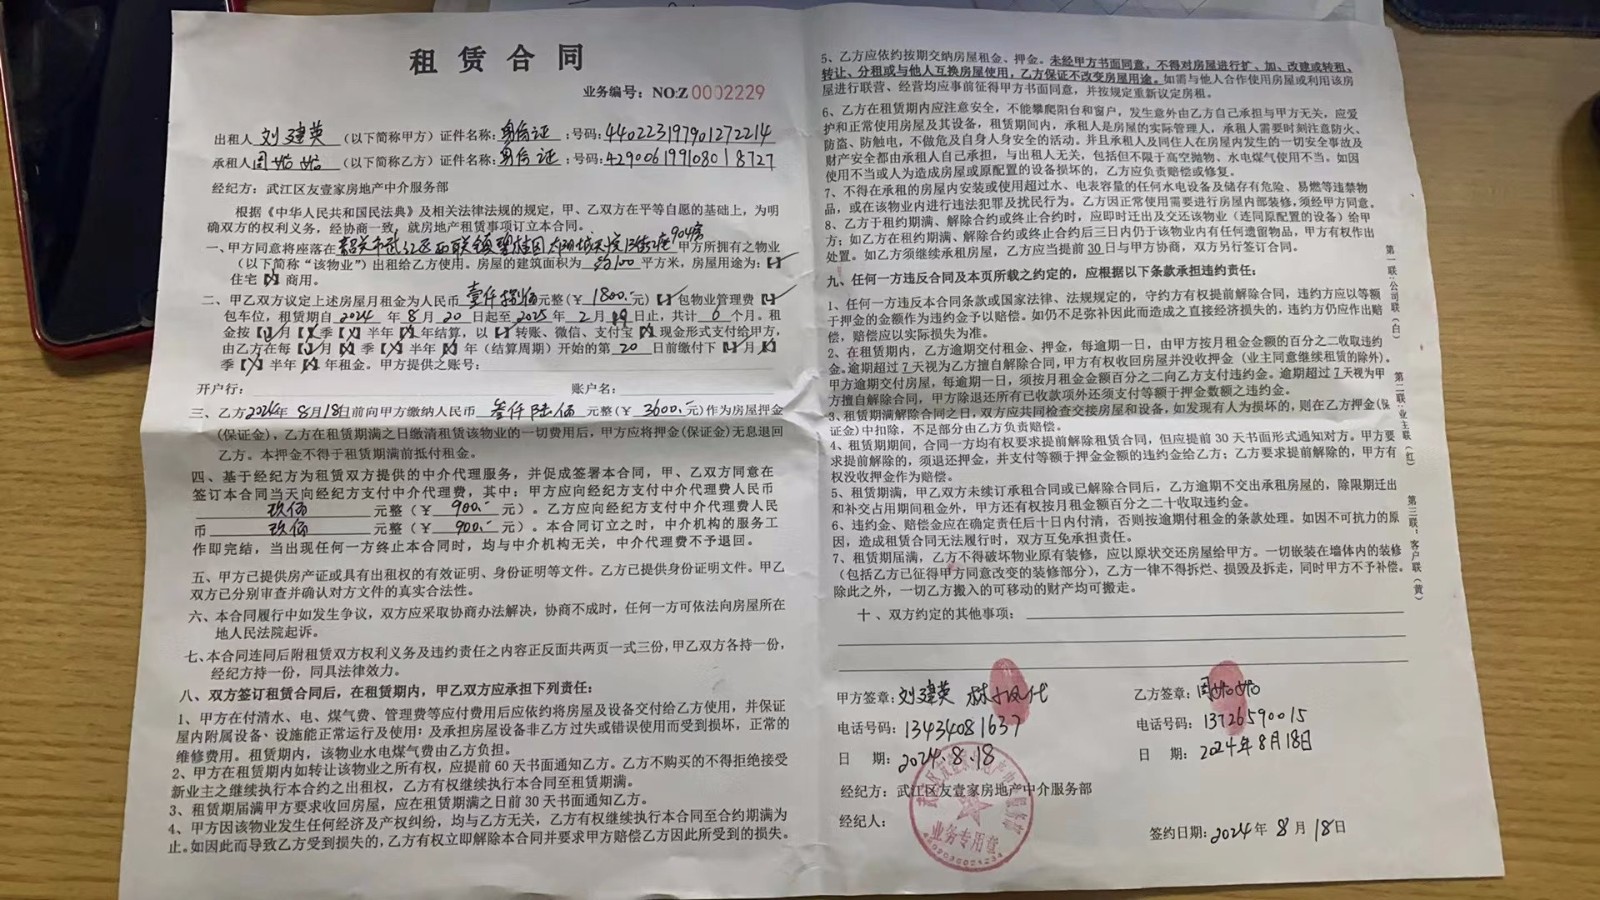 租赁合同
业务编号：NO:Z0002229
出租人 刘建英 （以下简称甲方）证件名称：身份证 ：号码：440223197901272214
承租人 周婚婚 （以下简称乙方）证件名称：身份证 ：号码：429006199108018727
经纪方：武江区友壹家房地产中介服务部
根据《中华人民共和国民法典》及相关法律法规的规定，甲、乙双方在平等自愿的基础上，为明
确双方的权利义务，经协商一致，就房地产租赁事项订立本合同。
一、甲方同意将座落在韶关市武江区西联镇碧桂园太阳城 904房 甲方所拥有之物业
（以下简称“该物业”）出租给乙方使用。房屋的建筑面积为 约100 平方米，房屋用途为：【✓】
住宅【×】商用。
二、甲乙双方议定上述房屋月租金为人民币 壹仟捌佰元整（￥ 1800.- 元）【✓】包物业管理费【✓】
包车位，租赁期自2024 年 8 月 20 日起至2025 年 2 月 19日止，共计 6 个月。租
金按【✓】月【×】季【×】半年【×】年结算，以【✓】转账、微信、支付宝【×】现金形式支付给甲方，
由乙方在每【✓】月【×】季【×】半年【×】年（结算周期）开始的第 20 日前缴付下【✓】月【×】
季【×】半年【×】年租金。甲方提供之账号：
开户行： 账户名：
三、乙方2024年 8月18日前向甲方缴纳人民币 叁仟陆佰 元整（￥ 3600.- 元）作为房屋押金
（保证金），乙方在租赁期满之日缴清租赁该物业的一切费用后，甲方应将押金（保证金）无息退回
乙方。本押金不得于租赁期满前抵付租金。
四、基于经纪方为租赁双方提供的中介代理服务，并促成签署本合同，甲、乙双方同意在
签订本合同当天向经纪方支付中介代理费，其中：甲方应向经纪方支付中介代理费人民币
玖佰 元整（￥ 900.- 元）。乙方应向经纪方支付中介代理费人民
币 玖佰 元整（￥ 900.- 元）。本合同订立之时，中介机构的服务工
作即完结，当出现任何一方终止本合同时，均与中介机构无关，中介代理费不予退回。
五、甲方已提供房产证或具有出租权的有效证明、身份证明等文件。乙方已提供身份证明文件。甲乙
双方已分别审查并确认对方文件的真实合法性。
六、本合同履行中如发生争议，双方应采取协商办法解决，协商不成时，任何一方可依法向房屋所在
地人民法院起诉。
七、本合同连同后附租赁双方权利义务及违约责任之内容正反面共两页一式三份，甲乙双方各持一份，
经纪方持一份，同具法律效力。
八、双方签订租赁合同后，在租赁期内，甲乙双方应承担下列责任：
1、甲方在付清水、电、煤气费、管理费等应付费用后应依约将房屋及设备交付给乙方使用，并保证
屋内附属设备、设施能正常运行及使用；及承担房屋设备非乙方过失或错误使用而受到损坏，正常的
维修费用。租赁期内，该物业水电煤气费由乙方负担。
2、甲方在租赁期内如转让该物业之所有权，应提前60天书面通知乙方。乙方不购买的不得拒绝接受
新业主之继续执行本合约之出租权，乙方有权继续执行本合同至租赁期满。
3、租赁期届满甲方要求收回房屋，应在租赁期满之日前30天书面通知乙方。
4、甲方因该物业发生任何经济及产权纠纷，均与乙方无关，乙方有权继续执行本合同至合约期满为
止。如因此而导致乙方受到损失的，乙方有权立即解除本合同并要求甲方赔偿乙方因此所受到的损失。
5、乙方应依约按期交纳房屋租金、押金。未经甲方书面同意，不得对房屋进行扩、加、改建或转租、
转让、分租或与他人互换房屋使用，乙方保证不改变房屋用途。如需与他人合作使用房屋或利用该房
屋进行联营、经营均应事前征得甲方书面同意，并按规定重新议定房租。
6、乙方在租赁期内应注意安全，不能攀爬阳台和窗户，发生意外由乙方自己承担与甲方无关，应爱
护和正常使用房屋及其设备，租赁期间内，承租人是房屋的实际管理人，承租人需要时刻注意防火、
防盗、防触电，不做危及自身人身安全的活动。并且承租人及同住人在房屋内发生的一切安全事故及
财产安全都由承租人自己承担，与出租人无关，包括但不限于高空抛物、水电煤气使用不当。如因
使用不当或人为造成房屋或原配置的设备损坏的，乙方应负责赔偿或修复。
7、不得在承租的房屋内安装或使用超过水、电表容量的任何水电设备及储存有危险、易燃等违禁物
品，或在该物业内进行违法犯罪及扰民行为。乙方因正常使用需要进行房屋内部装修，须经甲方同意。
8、乙方于租约期满、解除合约或终止合约时，应即时迁出及交还该物业（连同原配置的设备）给甲
方；如乙方在租约期满、解除合约或终止合约后三日内仍于该物业内有任何遗留物品，甲方有权作出
处置。如乙方须继续承租房屋，乙方应当提前30日与甲方协商，双方另行签订合同。
九、任何一方违反合同及本页所载之约定的，应根据以下条款承担违约责任：
1、任何一方违反本合同条款或国家法律、法规规定的，守约方有权提前解除合同，违约方应以等额
于押金的金额作为违约金予以赔偿。如仍不足弥补因此而造成之直接经济损失的，违约方仍应作出赔
偿，赔偿应以实际损失为准。
2、在租赁期内，乙方逾期交付租金、押金，每逾期一日，由甲方按月租金金额的百分之二收取违约
金。逾期超过7天视为乙方擅自解除合同，甲方有权收回房屋并没收押金（业主同意继续租赁的除外）。
甲方逾期交付房屋，每逾期一日，须按月租金金额百分之二向乙方支付违约金。逾期超过7天视为甲
方擅自解除合同，甲方除退还所有已收款项外还须支付等额于押金数额之违约金。
3、租赁期满解除合同之日，双方应共同检查交接房屋和设备，如发现有人为损坏的，则在乙方押金（保
证金）中扣除，不足部分由乙方负责赔偿。
4、租赁期期间，合同一方均有权要求提前解除租赁合同，但应提前30天书面形式通知对方。甲方要
求提前解除的，须退还押金，并支付等额于押金金额的违约金给乙方；乙方要求提前解除的，甲方有
权没收押金作为赔偿。
5、租赁期满，甲乙双方未续订承租合同或已解除合同后，乙方逾期不交出承租房屋的，除限期迁出
和补交占用期间租金外，甲方还有权按月租金额百分之二十收取违约金。
6、违约金、赔偿金应在确定责任后十日内付清，否则按逾期付租金的条款处理。如因不可抗力的原
因，造成租赁合同无法履行时，双方互免承担责任。
7、租赁期届满，乙方不得破坏物业原有装修，应以原状交还房屋给甲方。一切嵌装在墙体内的装修
（包括乙方已征得甲方同意改变的装修部分），乙方一律不得拆烂、损毁及拆走，同时甲方不予补偿。
除此之外，一切乙方搬入的可移动的财产均可搬走。
十、双方约定的其他事项：
甲方签章：刘建英 代
电话号码：13434081637
日 期：2024.8.18
经纪方：武江区友壹家房地产中介服务部
经纪人：
乙方签章：周婚婚
电话号码：13726590015
日 期：2024年8月18日
签约日期：2024年 8 月 18日
业务专用章
第一联：公司联（白）
第二联：业主联（红）
第三联：客户联（黄）